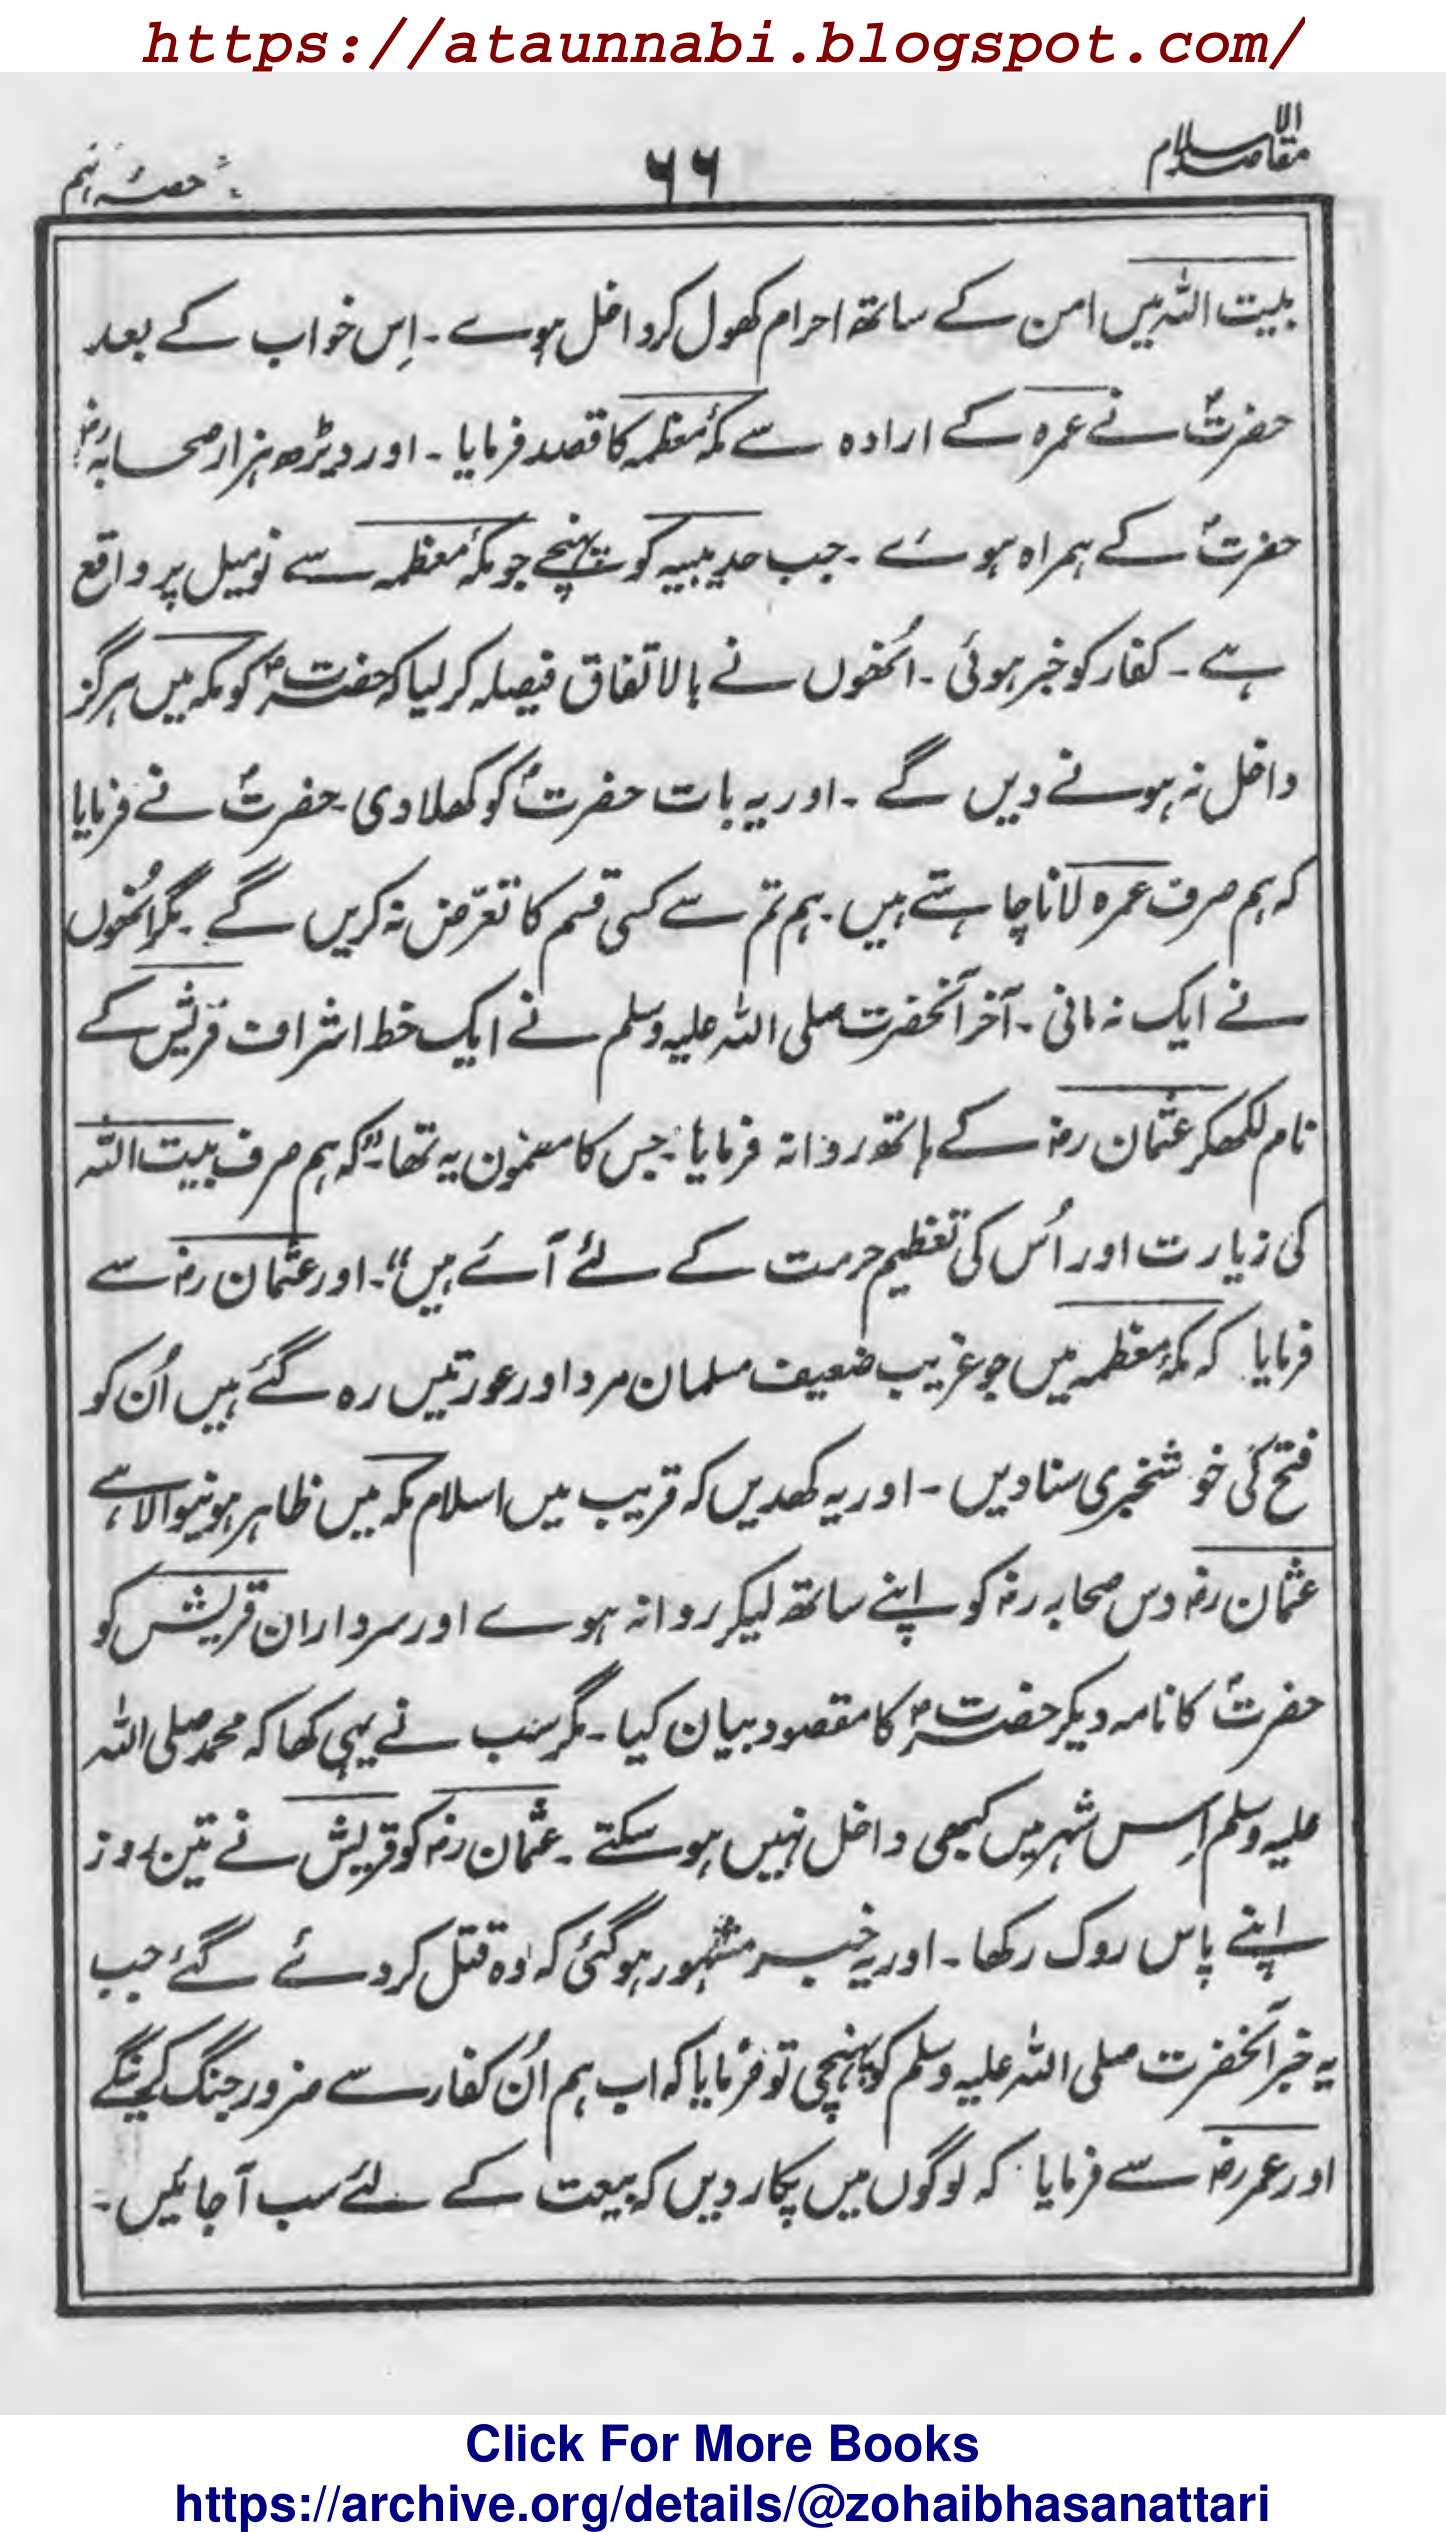 https://ataunnabi.blogspot.com/
مقاصد الاسلام
۶۶
حصۂ نہم
بیت اللہ میں امن کے ساتھ احرام کھول کر داخل ہوے ۔ اِس خواب کے بعد
حضرتؐ نے عمرہ کے ارادہ سے مکۂ معظمہ کا قصد فرمایا ۔ اور دیڑھ ہزار صحابہ رضؓ
حضرتؐ کے ہمراہ ہوئے ۔ جب حدیبیہ کو پہنچے جو مکۂ معظمہ سے نو میل پر واقع
ہے ۔ کفار کو خبر ہوئی ۔ اُنھوں نے بالاتفاق فیصلہ کر لیا کہ حضرتؐ کو مکہ میں ہرگز
داخل نہ ہونے دیں گے ۔ اور یہ بات حضرتؐ کو کھلا دی ۔ حضرتؐ نے فرمایا
کہ ہم صرف عمرہ لانا چاہتے ہیں ۔ ہم تم سے کسی قسم کا تعرّض نہ کریں گے ۔ مگر اُنھوں
نے ایک نہ مانی ۔ آخر آنحضرت صلی اللہ علیہ وسلم نے ایک خط اشراف قریش کے
نام لکھکر عثمان رضؓ کے ہاتھ روانہ فرمایا ۔ جس کا مضمون یہ تھا ۔ ”کہ ہم صرف بیت اللہ
کی زیارت اور اُس کی تعظیم حرمت کے لئے آئے ہیں“ ۔ اور عثمان رضؓ سے
فرمایا کہ مکۂ معظمہ میں جو غریب ضعیف مسلمان مرد اور عورتیں رہ گئے ہیں اُن کو
فتح کی خوشخبری سنا دیں ۔ اور یہ کھدیں کہ قریب میں اسلام مکہ میں ظاہر ہونیوالا ہے
عثمان رضؓ دس صحابہ رضؓ کو اپنے ساتھ لیکر روانہ ہوے اور سرداران قریش کو
حضرتؐ کا نامہ دیکر حضرتؐ کا مقصود بیان کیا ۔ مگر سب نے یہی کھا کہ محمد صلی اللہ
علیہ وسلم اِس شہر میں کبھی داخل نہیں ہو سکتے ۔ عثمان رضؓ کو قریش نے تین روز
اپنے پاس روک رکھا ۔ اور یہ خبر مشہور ہو گئی کہ وہ قتل کر دئے گئے جب
یہ خبر آنحضرت صلی اللہ علیہ وسلم کو پہنچی تو فرمایا کہ اب ہم اُن کفار سے ضرور جنگ کرینگے
اور عمر رضؓ سے فرمایا کہ لوگوں میں پکار دیں کہ بیعت کے لئے سب آجائیں ۔
Click For More Books
https://archive.org/details/@zohaibhasanattari